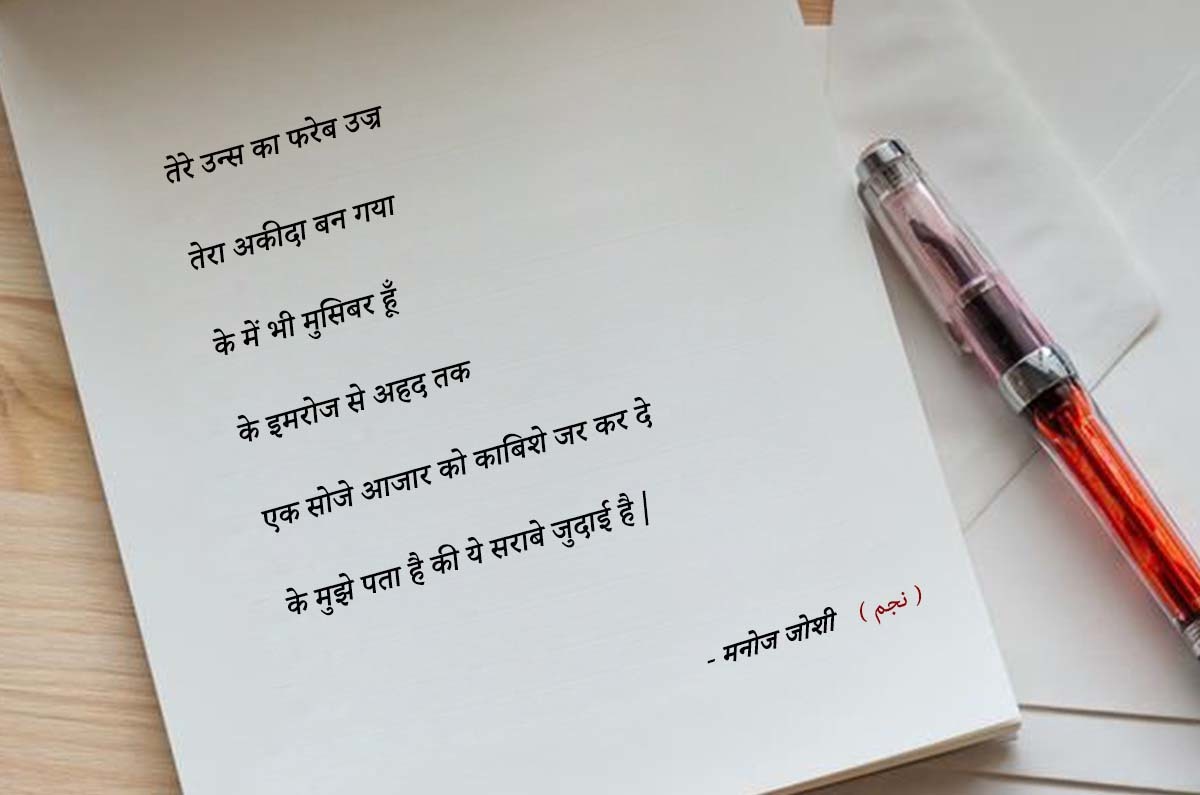 तेरे उन्स का फरेब उज्र
तेरा अकीदा बन गया
के में भी मुसिबर हूँ
के इमरोज से अहद तक
एक सोजे आजार को काबिशे जर कर दे
के मुझे पता है की ये सराबे जुदाई है |
- मनोज जोशी ( نجم )